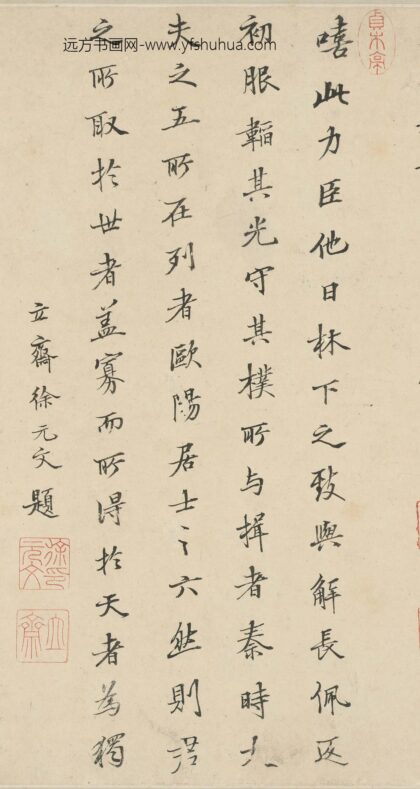 远方书画网-www.yfshuhua.com
嘻此力臣他日林下之致與解長佩返
初服韜其光守其樸所与揖者秦時大
夫之五所在列者歐陽居士之六然則君
之所取於世者盖寡而所得於天者為獨
立齋徐元文題
徐元文印
立齋